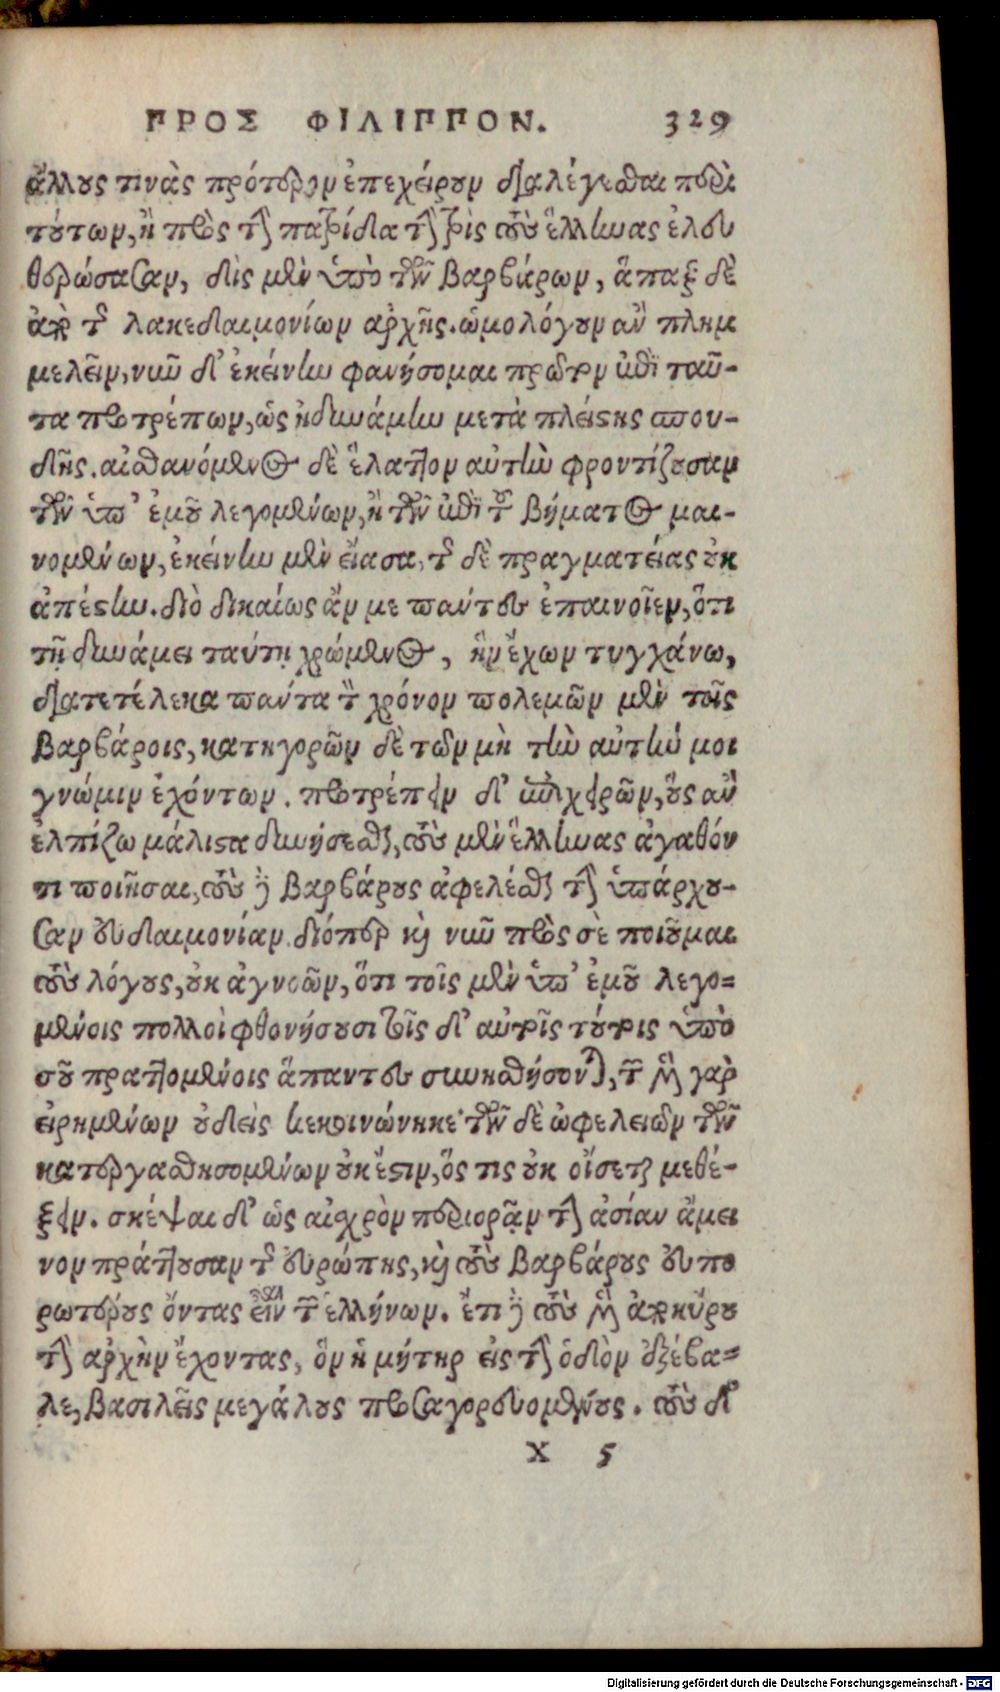 ΠΡΟΣ ΦΙΛΙΠΠΟΝ. 329
ἄλλους τινὰς πρότερον ἐπεχείρουν διαλέγεσθαι περὶ
τούτων, ἢ πρὸς τὴν πατρίδα τὴν τρὶς τοὺς ἕλληνας ἐλευ
θερώσασαν, δὶς μὲν ὑπὸ τῶν βαρβάρων, ἅπαξ δὲ
ἀπὸ τῆς λακεδαιμονίων ἀρχῆς. ὡμολόγουν ἂν πλημ
μελεῖν, νῦν δ' ἐκείνην φανήσομαι πρῶτον ἐπὶ ταῦ-
τα προτρέπων, ὡς ἠδυνάμην μετὰ πλείστης σπου-
δῆς. αἰσθανόμενος δὲ ἔλαττον αὐτὴν φροντίζουσαν
τῶν ὑπ' ἐμοῦ λεγομένων, ἢ τῶν ἐπὶ τοῦ βήματος μαι-
νομένων, ἐκείνην μὲν εἴασα, τῆς δὲ πραγματείας οὐκ
ἀπέστην. διὸ δικαίως ἄν με πάντες ἐπαινοῖεν, ὅτι
τῇ δυνάμει ταύτῃ χρώμενος, ἣν ἔχων τυγχάνω,
διατετέλεκα πάντα τὸν χρόνον πολεμῶν μὲν τοῖς
βαρβάροις, κατηγορῶν δὲ τῶν μὴ τὴν αὐτήν μοι
γνώμιν ἐχόντων. προτρέπειν δ' ἐπιχειρῶν, οὓς ἂν
ἐλπίζω μάλιστα δυνήσεσθαι, τοὺς μὲν ἕλληνας ἀγαθόν
τι ποιῆσαι, τοὺς δὲ βαρβάρους ἀφελέσθαι τὴν ὑπάρχου-
σαν εὐδαιμονίαν. διόπερ καὶ νῦν πρὸς σὲ ποιοῦμαι
τοὺς λόγους, οὐκ ἀγνοῶν, ὅτι τοῖς μὲν ὑπ' ἐμοῦ λεγο-
μένοις πολλοὶ φθονήσουσι τοῖς δ' αὐτοῖς τούτοις ὑπὸ
σοῦ πραττομένοις ἅπαντες συνησθήσονται, τῶν μὲν γὰρ
εἰρημένων οὐδεὶς κεκοινώνηκε· τῶν δὲ ὠφελειῶν τῶν
κατεργασθησομένων οὐκ ἔστιν, ὅς τις οὐκ οἴσεται μεθέ-
ξειν. σκέψαι δ' ὡς αἰσχρὸν περιορᾶν τὴν ἀσίαν ἄμει
νον πράττουσαν τῆς εὐρώπης, καὶ τοὺς βαρβάρους εὐπο
ρωτέρους ὄντας εἶναι τῶν ἑλλήνων. ἔτι δὲ τοὺς μὲν ἀπὸ κύρου
τὴν ἀρχὴν ἔχοντας, ὃν ἡ μήτηρ εἰς τὴν ὁδὸν ἐξέβα-
λε, βασιλεῖς μεγάλους προσαγορευομένους. τοὺς δ'
X 5
Digitalisierung gefördert durch die Deutsche Forschungsgemeinschaft - DFG